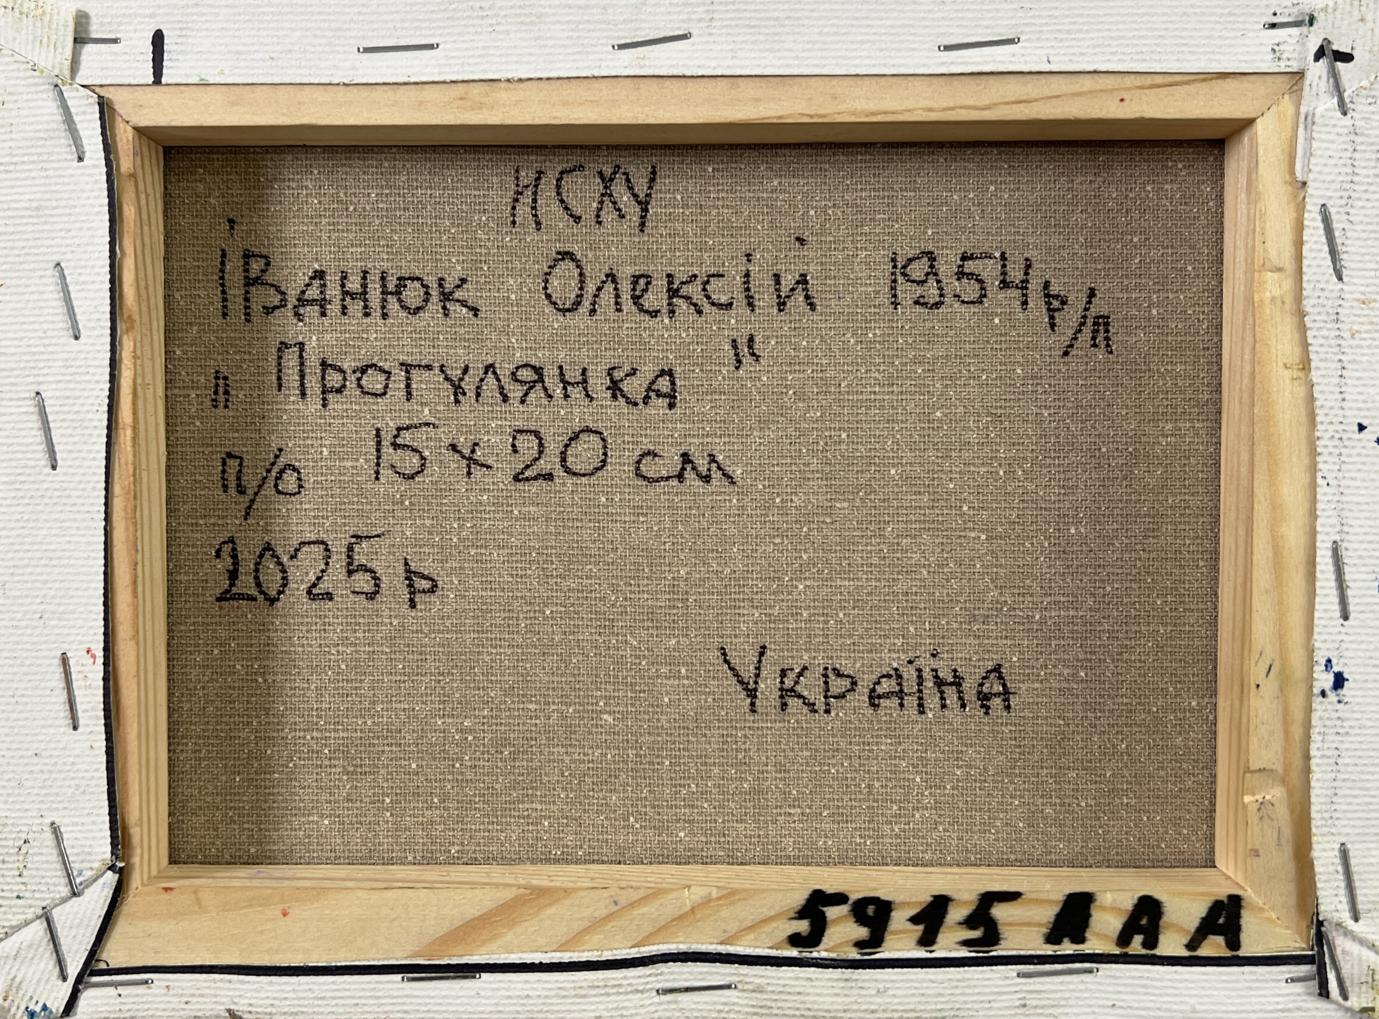 НСХУ
Іванюк Олексій 1954 р/п
„Прогулянка"
п/о 15 х 20 см
2025 р
Україна
5915 ААА